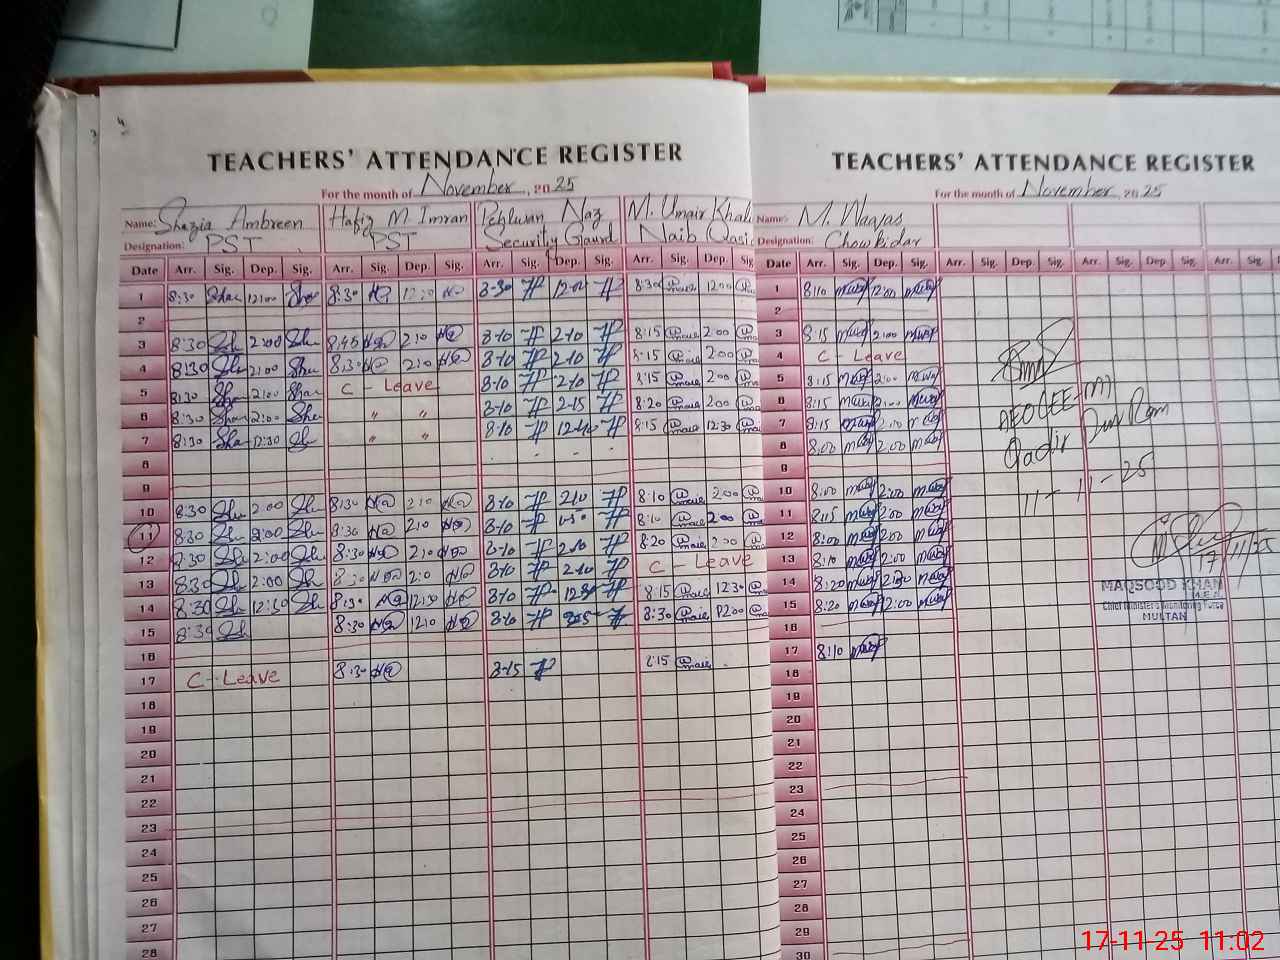 TEACHERS' ATTENDANCE REGISTER
For the month of November, 2025
Name: Shazia Ambreen Hafiz M. Imran Pehlwan Naz M. Umair Khali
Designation: PST PST Security Gaurd Naib Qasi
Date Arr. Sig. Dep. Sig. Arr. Sig. Dep. Sig. Arr. Sig. Dep. Sig. Arr. Sig. Dep. Sig
1 8:30 12:00 8:30 12:00 8-30 12-00 8:30 12:00
2
3 8:30 2:00 8:45 2:10 8-10 2-10 8:15 2:00
4 8:30 2:00 8:30 2:10 8-10 2-10 8:15 2:00
5 8:30 2:00 C - Leave 8-10 2-10 8:15 2:00
6 8:30 2:00 " " 8-10 2-15 8:20 2:00
7 8:30 12:30 " " 8-10 8:15 12:30
8
9
10 8:30 2:00 8:30 2:10 8-10 2-10 8:10 2:00
11 8:30 2:00 8:30 2:10 8-10 8:10 2:00
12 8:30 2:00 8:30 2:10 8-10 2-10 8:20 2:00
13 8:30 2:00 8:30 2:10 8-10 2-10 C - Leave
14 8:30 12:30 8:30 12:30 8-10 8:15 12:30
15 8:30 8:30 12:10 8-10 8:30
16
17 C - Leave 8:30 8-15 8:15
18
19
20
21
22
23
24
25
26
27
28
TEACHERS' ATTENDANCE REGISTER
For the month of November, 2025
Name: M. Waqas
Designation: Chowkidar
Date Arr. Sig. Dep. Sig. Arr. Sig. Dep. Sig. Arr. Sig. Dep Sig. Arr. Sig.
1 8:10 12:00
2
3 8:15 2:00
4 C - Leave
5 8:15 2:00
6 8:15 2:00
7 8:15 2:00
8 8:00 2:00
9
10 8:00 2:00
11 8:15 2:00
12 8:00 2:00
13 8:10 2:00
14 8:20 2:00
15 8:20 2:00
16
17 8:10
18
19
20
21
22
23
24
25
26
27
28
29
30
AEO (EE-M)
Qadir Pur Ran
11-11-25
17/11/25
MAQSOOD KHAN
M.E.A
Chief Minister's Monitoring Force
MULTAN
17-11-25 11:02